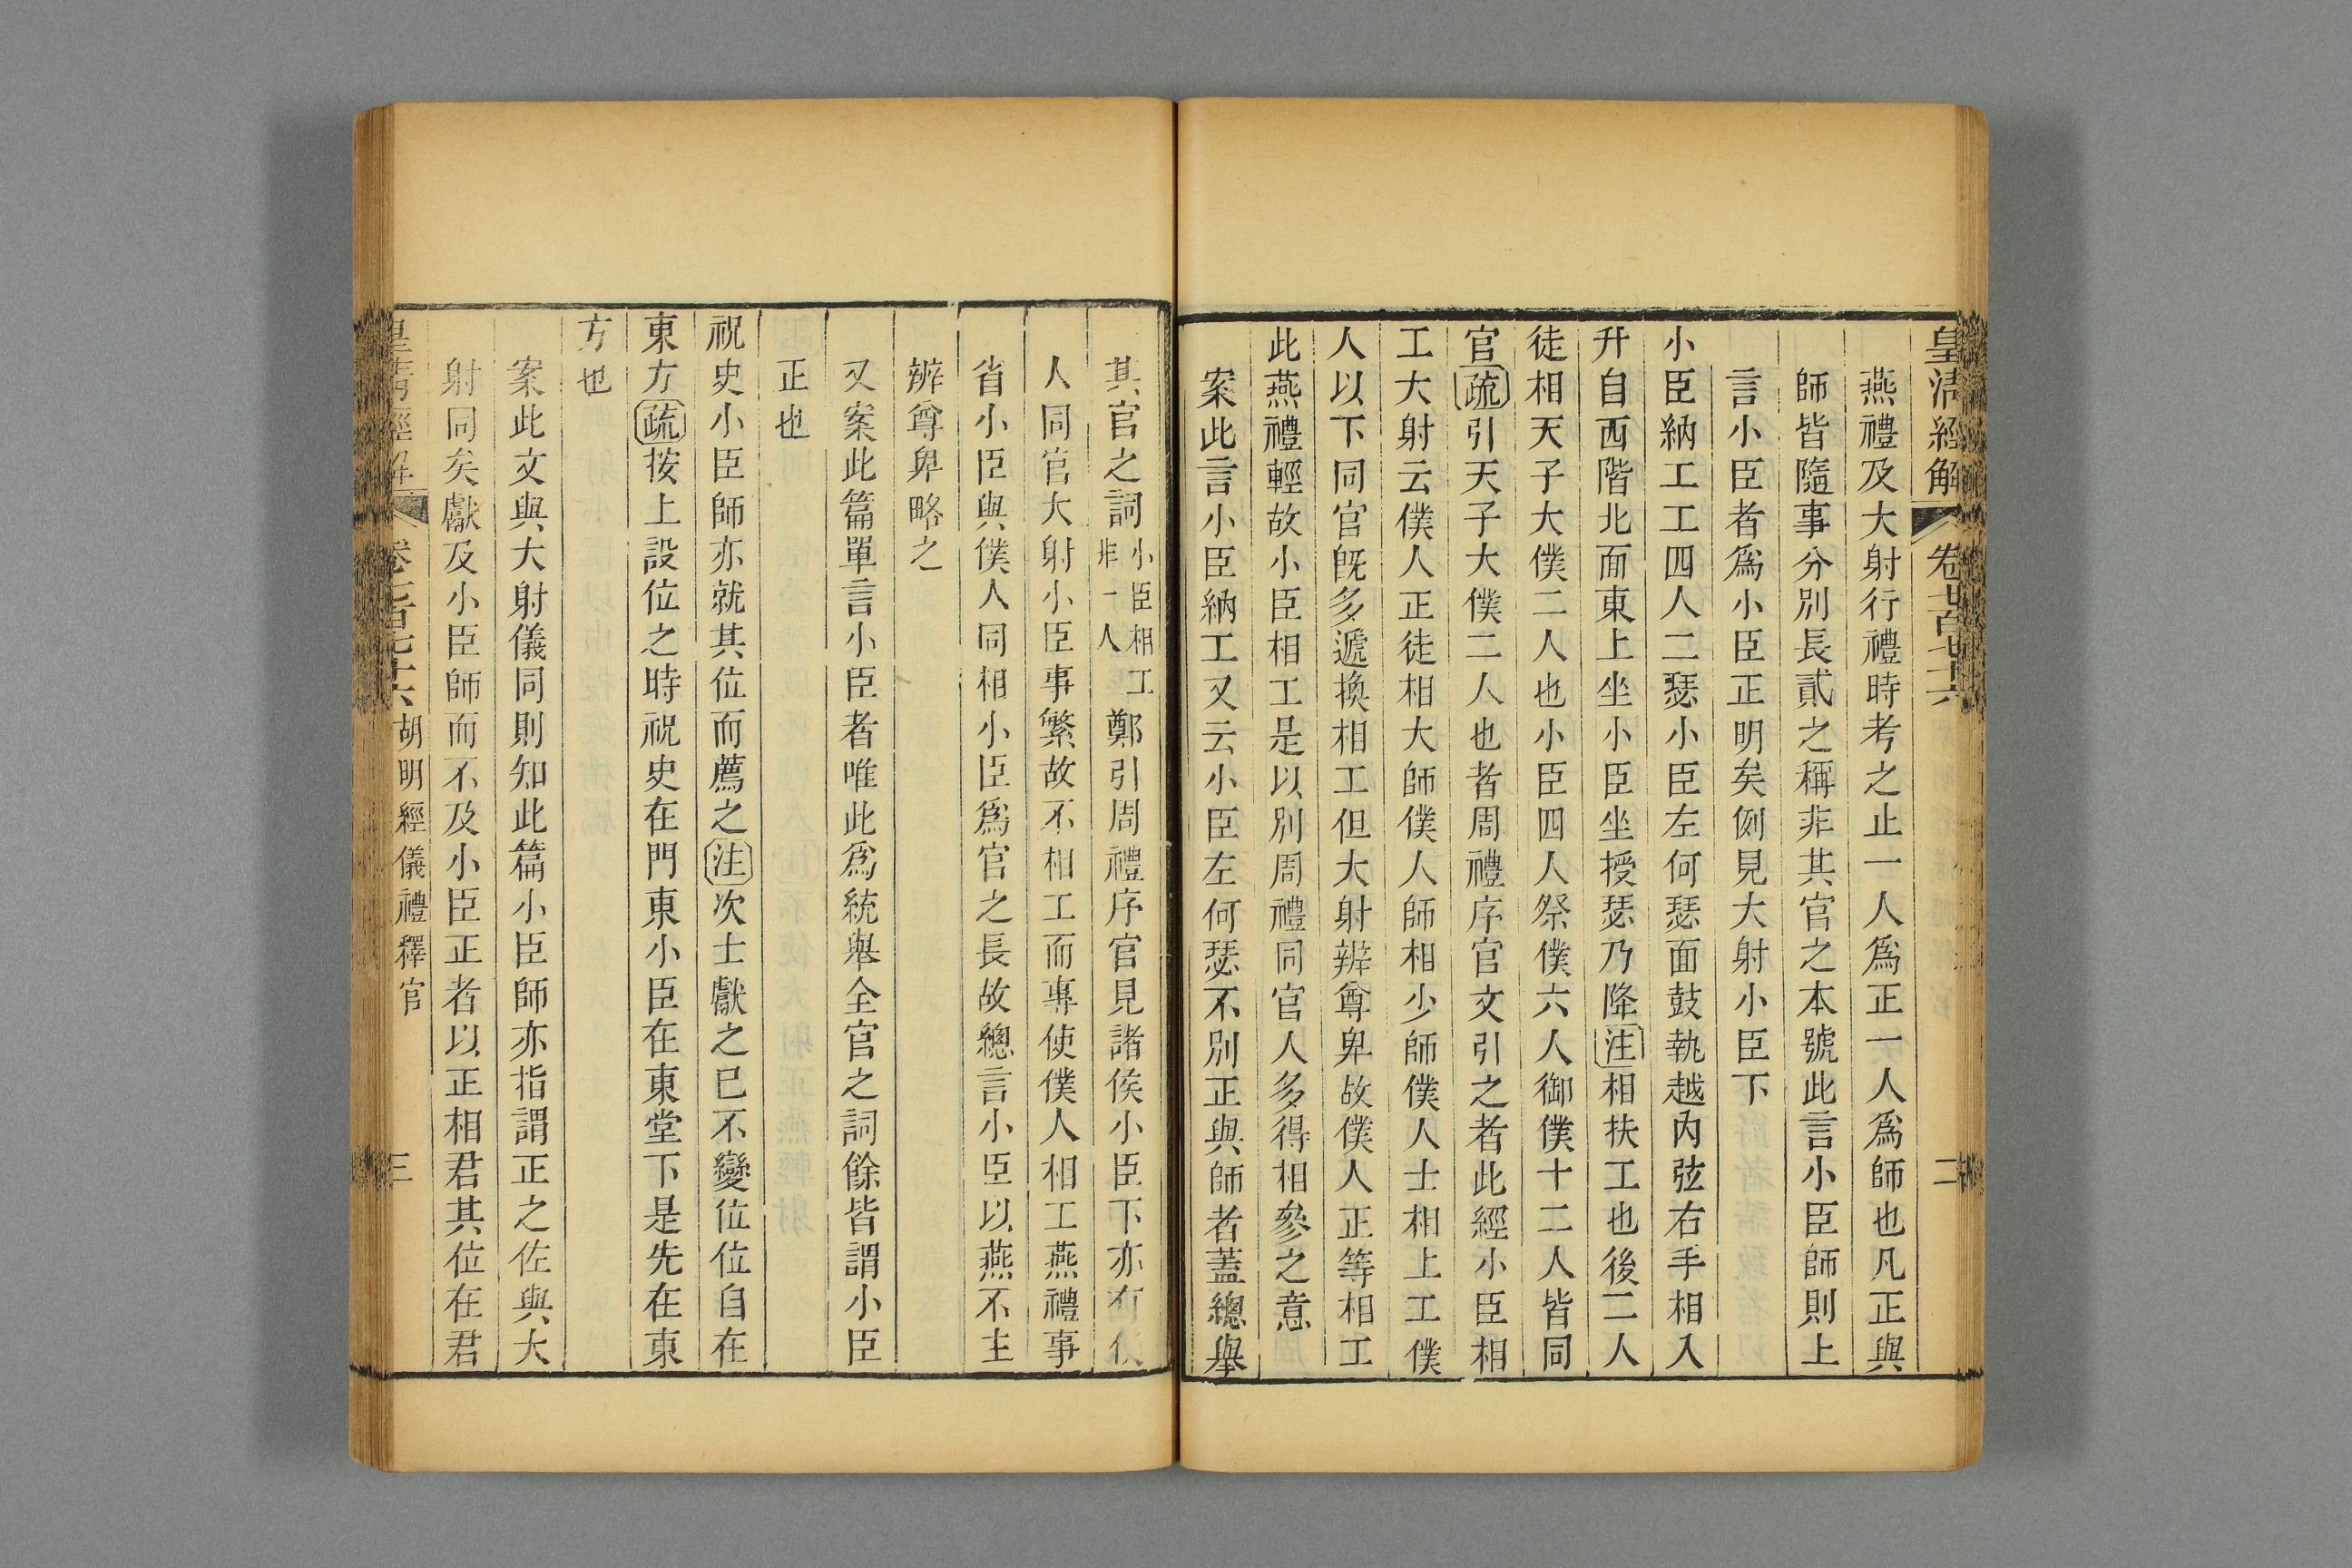 皇清經解 卷七百七十六 二
燕禮及大射行禮時考之止一人爲正一人爲師也凡正與
師皆隨事分別長貳之稱非其官之本號此言小臣師則上
言小臣者爲小臣正明矣例見大射小臣下
小臣納工工四人二瑟小臣左何瑟面鼓執越內弦右手相入
升自西階北面東上坐小臣坐授瑟乃降注相扶工也後二人
徒相天子大僕二人也小臣四人祭僕六人御僕十二人皆同
官疏引天子大僕二人也者周禮序官文引之者此經小臣相
工大射云僕人正徒相大師僕人師相少師僕人士相上工僕
人以下同官旣多遞換相工但大射辨尊卑故僕人正等相工
此燕禮輕故小臣相工是以別周禮同官人多得相參之意
案此言小臣納工又云小臣左何瑟不別正與師者蓋總舉
其官之詞小臣相工非一人鄭引周禮序官見諸侯小臣下亦有僕
人同官大射小臣事繁故不相工而專使僕人相工燕禮事
省小臣與僕人同相小臣爲官之長故總言小臣以燕不主
辨尊卑略之
又案此篇單言小臣者唯此爲統舉全官之詞餘皆謂小臣
正也
祝史小臣師亦就其位而薦之注次士獻之已不變位位自在
東方疏按上設位之時祝史在門東小臣在東堂下是先在東
方也
案此文與大射儀同則知此篇小臣師亦指謂正之佐與大
射同矣獻及小臣師而不及小臣正者以正相君其位在君
皇清經解 卷七百七十六 胡明經儀禮釋官 三